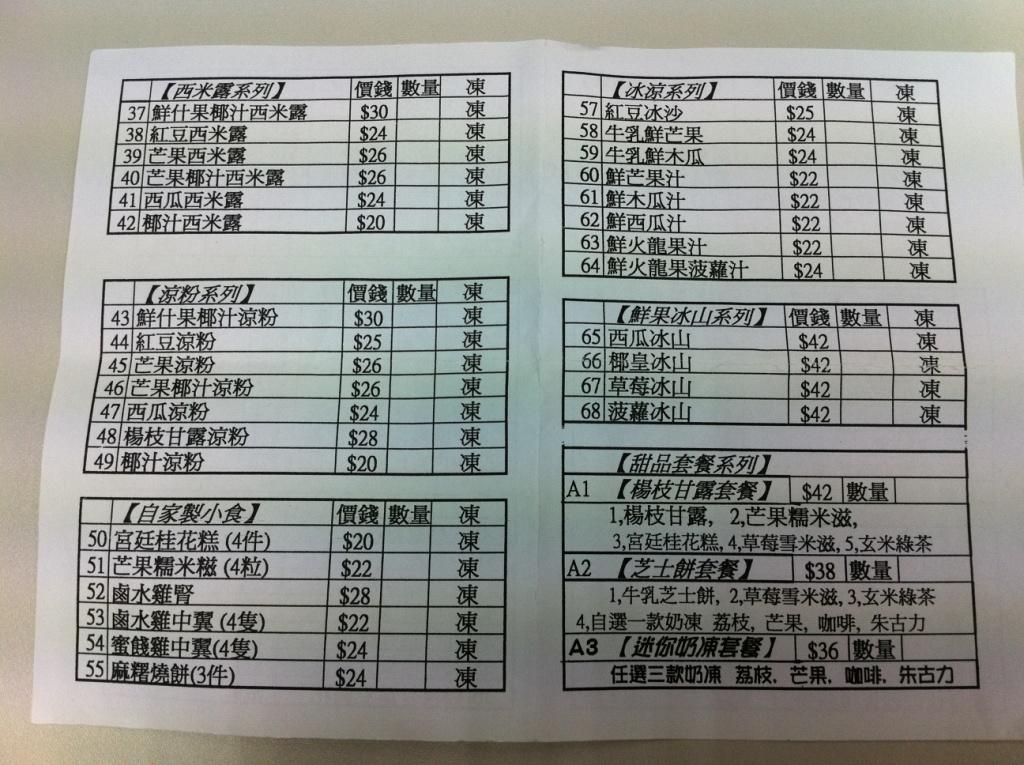 【西米露系列】 價錢 數量 凍
37 鮮什果椰汁西米露 $30 凍
38 紅豆西米露 $24 凍
39 芒果西米露 $26 凍
40 芒果椰汁西米露 $26 凍
41 西瓜西米露 $24 凍
42 椰汁西米露 $20 凍
【涼粉系列】 價錢 數量 凍
43 鮮什果椰汁涼粉 $30 凍
44 紅豆涼粉 $25 凍
45 芒果涼粉 $26 凍
46 芒果椰汁涼粉 $26 凍
47 西瓜涼粉 $24 凍
48 楊枝甘露涼粉 $28 凍
49 椰汁涼粉 $20 凍
【自家製小食】 價錢 數量 凍
50 宮廷桂花糕 (4件) $20 凍
51 芒果糯米糍 (4粒) $22 凍
52 鹵水雞腎 $28 凍
53 鹵水雞中翼 (4隻) $22 凍
54 蜜餞雞中翼(4隻) $24 凍
55 麻糬燒餅(3件) $24 凍
【冰涼系列】 價錢 數量 凍
57 紅豆冰沙 $25 凍
58 牛乳鮮芒果 $24 凍
59 牛乳鮮木瓜 $24 凍
60 鮮芒果汁 $22 凍
61 鮮木瓜汁 $22 凍
62 鮮西瓜汁 $22 凍
63 鮮火龍果汁 $22 凍
64 鮮火龍果菠蘿汁 $24 凍
【鮮果冰山系列】 價錢 數量 凍
65 西瓜冰山 $42 凍
66 椰皇冰山 $42 凍
67 草莓冰山 $42 凍
68 菠蘿冰山 $42 凍
【甜品套餐系列】
A1 【楊枝甘露套餐】 $42 數量
1,楊枝甘露, 2,芒果糯米滋,
3,宮廷桂花糕, 4,草莓雪米滋, 5,玄米綠茶
A2 【芝士餅套餐】 $38 數量
1,牛乳芝士餅, 2,草莓雪米滋, 3,玄米綠茶
4,自選一款奶凍 荔枝, 芒果, 咖啡, 朱古力
A3 【迷你奶凍套餐】 $36 數量
任選三款奶凍 荔枝, 芒果, 咖啡, 朱古力